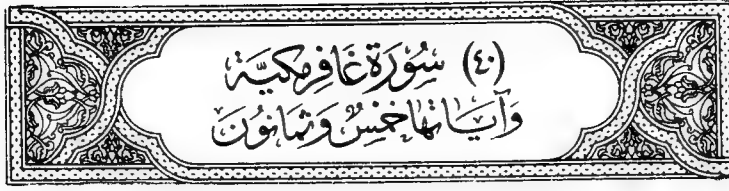 (٤٠) سُورَةُ غَافِرٍ مَكِّيَّة
وَآيَاتُهَا خَمْسٌ وَثَمَانُونَ